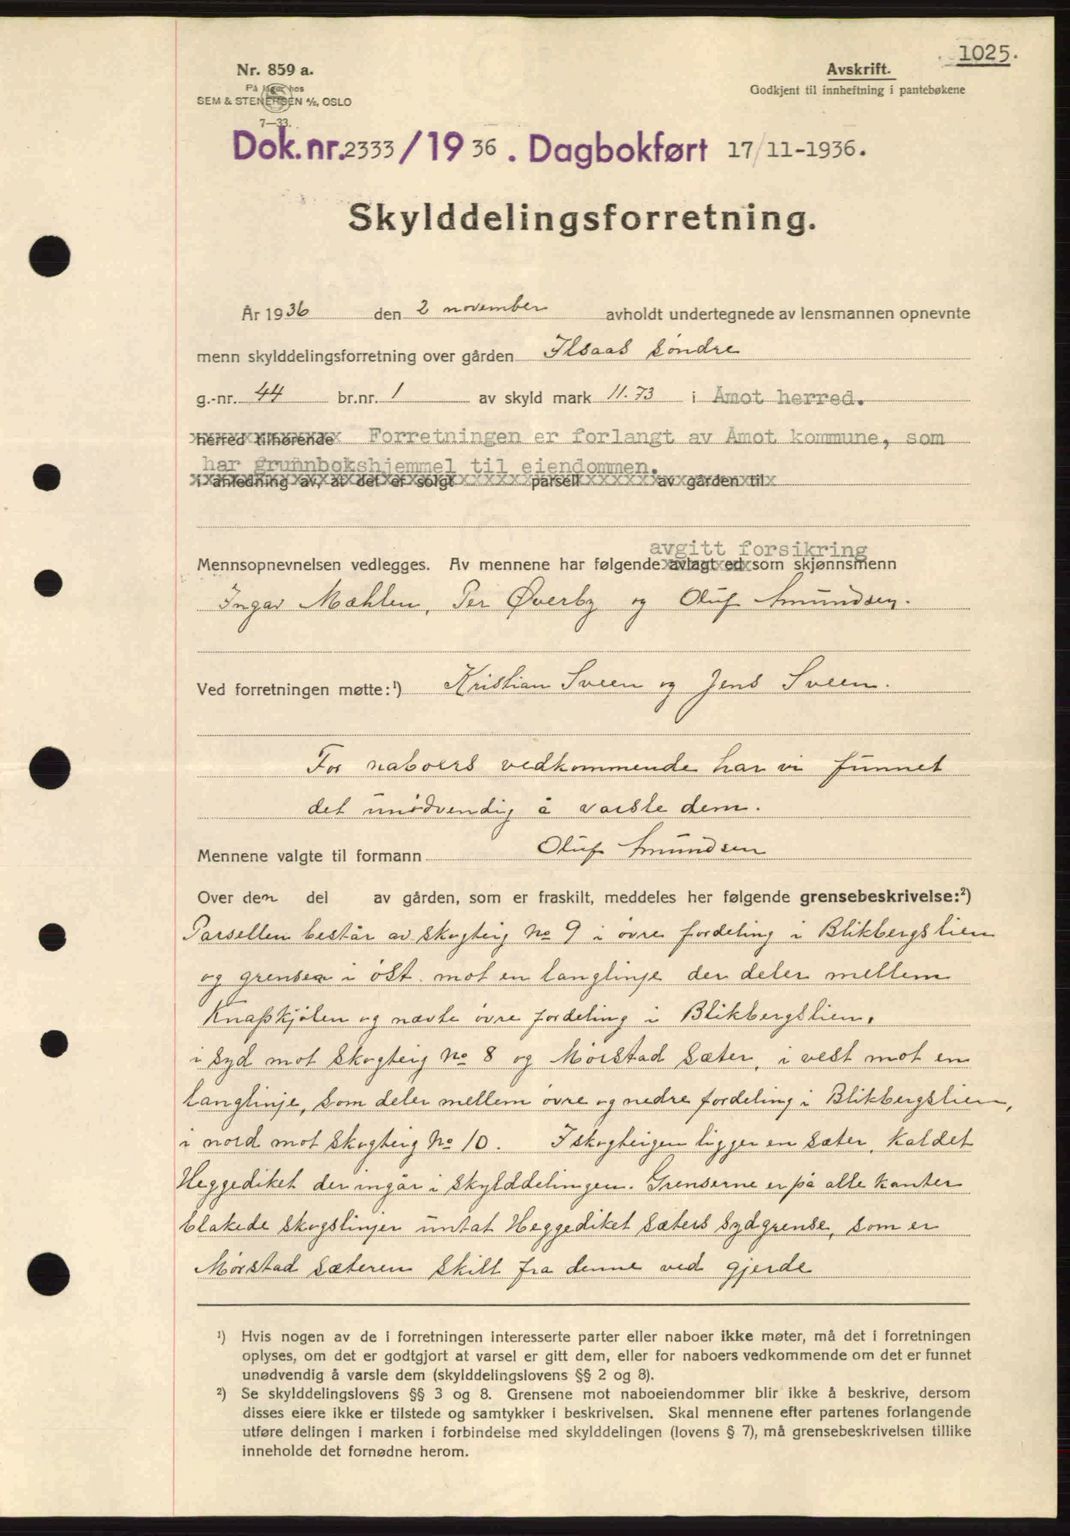 1025.
Nr. 859 a.
På lager hos
SEM & STENERSEN A/S, OSLO
7—33.
Avskrift.
Godkjent til innheftning i pantebøkene
Dok.nr. 2333 /19 36 . Dagbokført 17/11-1936.
Skylddelingsforretning.
År 1936 den 2 november avholdt undertegnede av lensmannen opnevnte
menn skylddelingsforretning over gården Ilsaas søndre
g.-nr. 44 br.nr. 1 av skyld mark 11.73 i Åmot herred.
herred tilhørende Forretningen er forlangt av Åmot kommune, som
har grunnbokshjemmel til eiendommen.
i anledning av, at det er solgt parsell av gården til
avgitt forsikring
Mennsopnevnelsen vedlegges. Av mennene har følgende avlagt ed som skjønnsmenn
Ingar Mæhlen, Per Øverby og Oluf Amundsen.
Ved forretningen møtte:¹) Kristian Sveen og Jens Sveen.
For naboers vedkommende har vi funnet
det unødvendig å varsle dem.
Mennene valgte til formann Oluf Amundsen
Over den del av gården, som er fraskilt, meddeles her følgende grensebeskrivelse:²)
Parsellen består av skogteig No 9 i øvre fordeling i Blikbergslien
og grenser i øst mot en langlinje der deler mellem
Knapkjølen og nævte øvre fordeling i Blikbergslien,
i syd mot skogteig No 8 og Mørstad Sæter, i vest mot en
langlinje, som deler mellem øvre og nedre fordeling i Blikbergslien,
i nord mot skogteig No 10. I skogteigen ligger en sæter, kaldet
Heggediket der ingår i skylddelingen. Grenserne er på alle kanter
blakede skogslinjer untat Heggediket sæters sydgrense, som er
Mørstad sæteren skilt fra denne ved gjerde
¹) Hvis nogen av de i forretningen interesserte parter eller naboer ikke møter, må det i forretningen
oplyses, om det er godtgjort at varsel er gitt dem, eller for naboers vedkommende om det er funnet
unødvendig å varsle dem (skylddelingslovens §§ 2 og 8).
²) Se skylddelingslovens §§ 3 og 8. Grensene mot naboeiendommer blir ikke å beskrive, dersom
disses eiere ikke er tilstede og samtykker i beskrivelsen. Skal mennene efter partenes forlangende
utføre delingen i marken i forbindelse med skylddelingen (lovens § 7), må grensebeskrivelsen tillike
inneholde det fornødne herom.